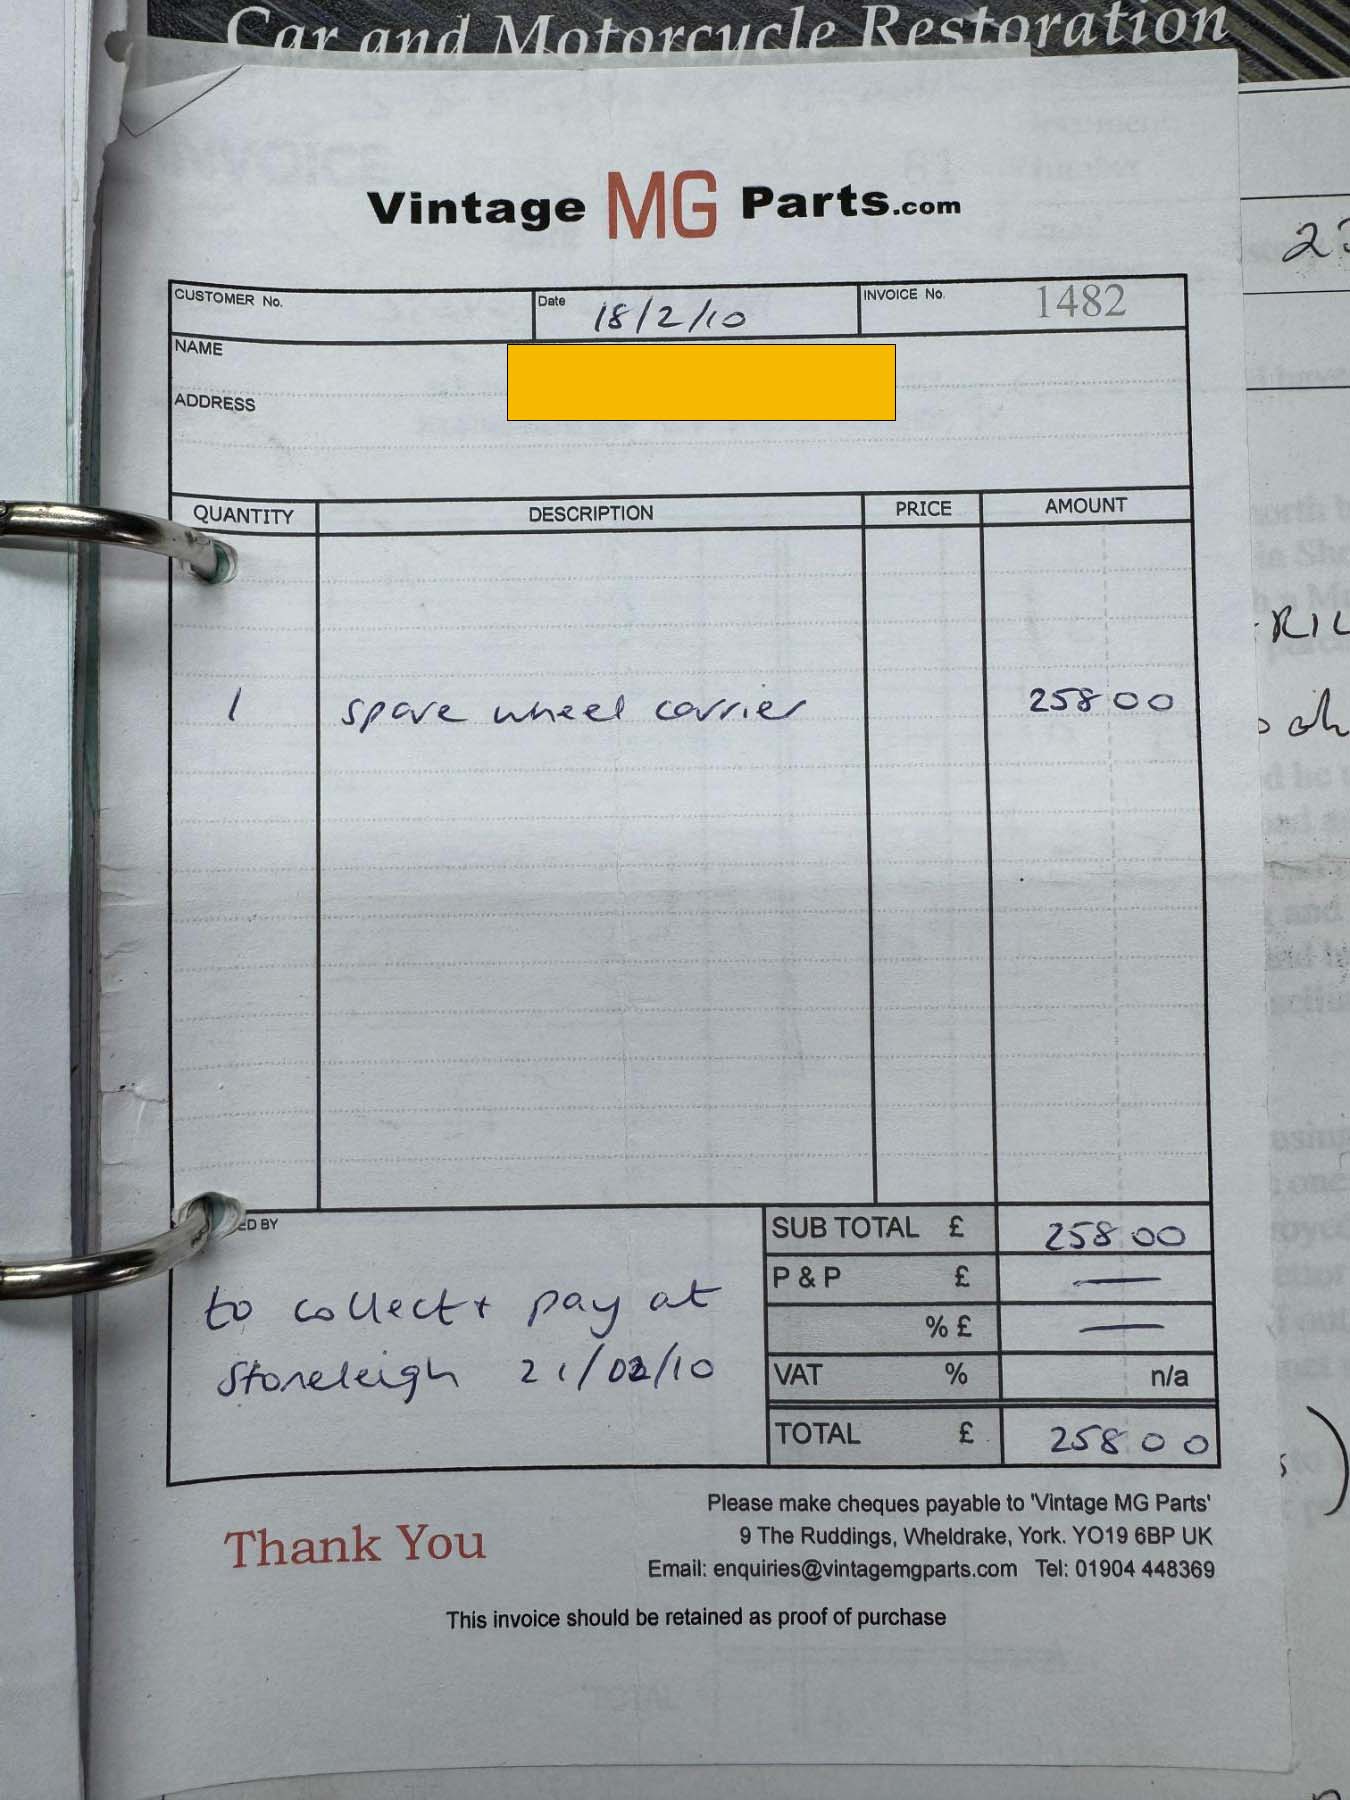 Car and Motorcycle Restoration
INVOICE
Vintage MG Parts.com
CUSTOMER No.
Date 18/2/10
INVOICE No. 1482
NAME
ADDRESS
QUANTITY DESCRIPTION PRICE AMOUNT
1 spare wheel carrier 258 00
ED BY
to collect + pay at
Stoneleigh 21/02/10
SUB TOTAL £ 258 00
P & P £ —
% £ —
VAT % n/a
TOTAL £ 258 00
Thank You
Please make cheques payable to 'Vintage MG Parts'
9 The Ruddings, Wheldrake, York. YO19 6BP UK
Email: enquiries@vintagemgparts.com Tel: 01904 448369
This invoice should be retained as proof of purchase